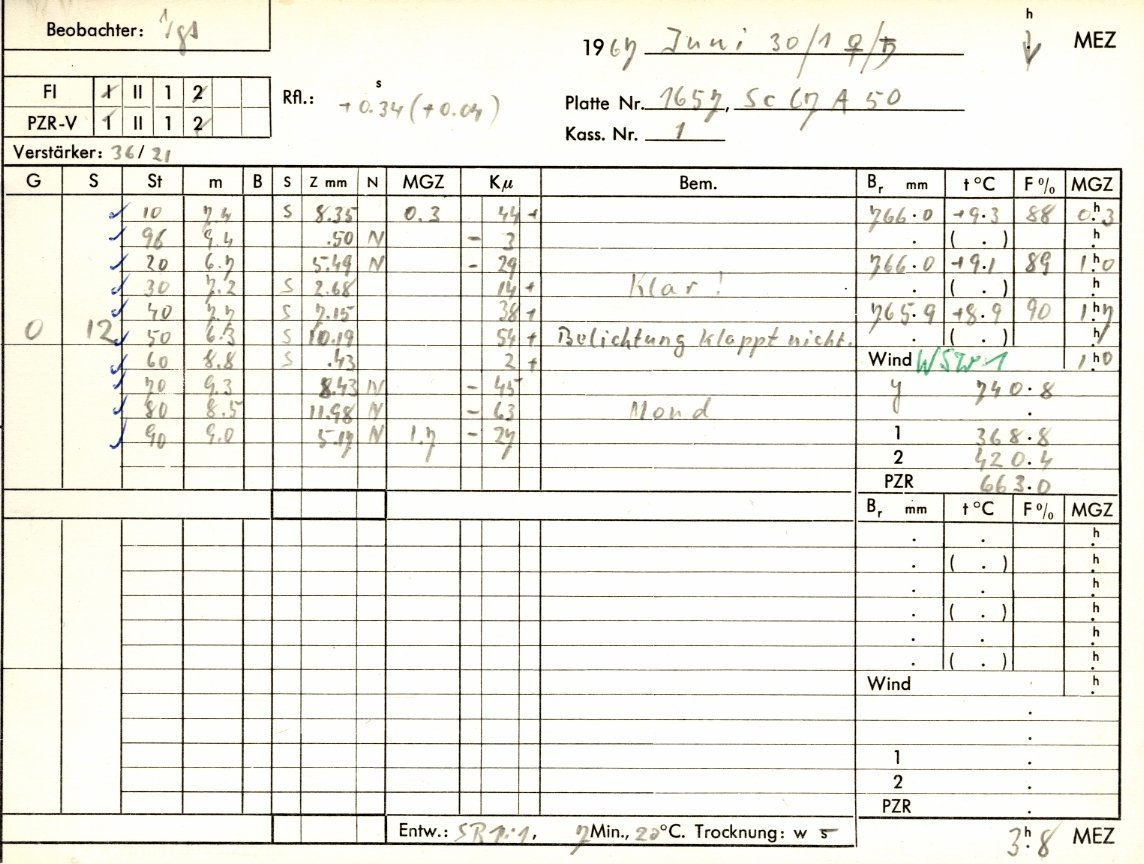 Beobachter: Vgs
1967 Juni 30/1 ♀/♄ h MEZ
FI I II 1 2
PZR-V 1 II 1 2
Rfl.: +0.34 (+0.04) s
Platte Nr. 1657, Sc 67 A 50
Kass. Nr. 1
Verstärker: 36/21
G S St m B S Z mm N MGZ Kμ Bem. Br mm t °C F % MGZ
✓ 10 7.4 S 8.35 0.3 44 + 766.0 +9.3 88 0h.3
✓ 96 9.4 .50 N - 3 . ( . ) h.
✓ 20 6.7 5.49 N - 29 766.0 +9.1 89 1h.0
✓ 30 7.2 S 2.68 14 + Klar! . ( . ) h.
✓ 40 7.7 S 7.15 38 + 765.9 +8.9 90 1h.7
0 12 ✓ 50 6.3 S 10.19 54 + Belichtung klappt nicht. . ( . ) h.
✓ 60 8.8 S .43 2 + Wind WSW-1 1h.0
✓ 70 9.3 8.43 N - 45 y 740.8
✓ 80 8.5 11.98 N - 63 Mond .
✓ 90 9.0 5.17 N 1.7 - 27 1 368.8
2 420.4
PZR 663.0
Br mm t °C F % MGZ
. . h.
. ( . ) h.
. . h.
. ( . ) h.
. . h.
. ( . ) h.
Wind h.
.
.
1 .
2 .
PZR .
Entw.: SR 1:1, 7 Min., 20°C. Trocknung: w s
3h.8 MEZ